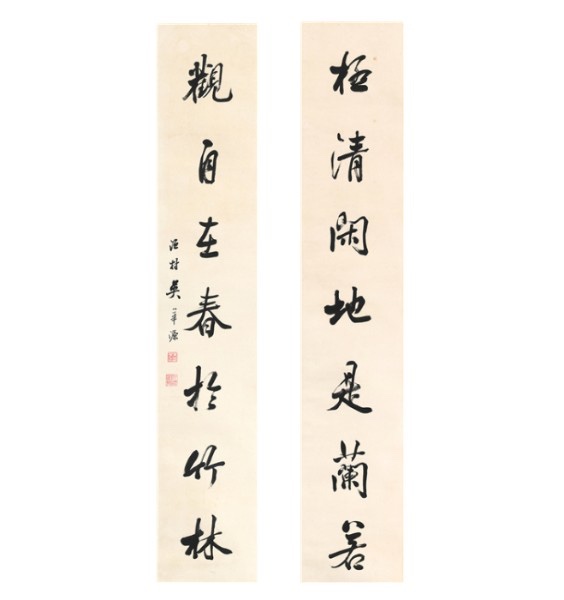 極清閑地是蘭若
觀自在春於竹林
漁村吳華源